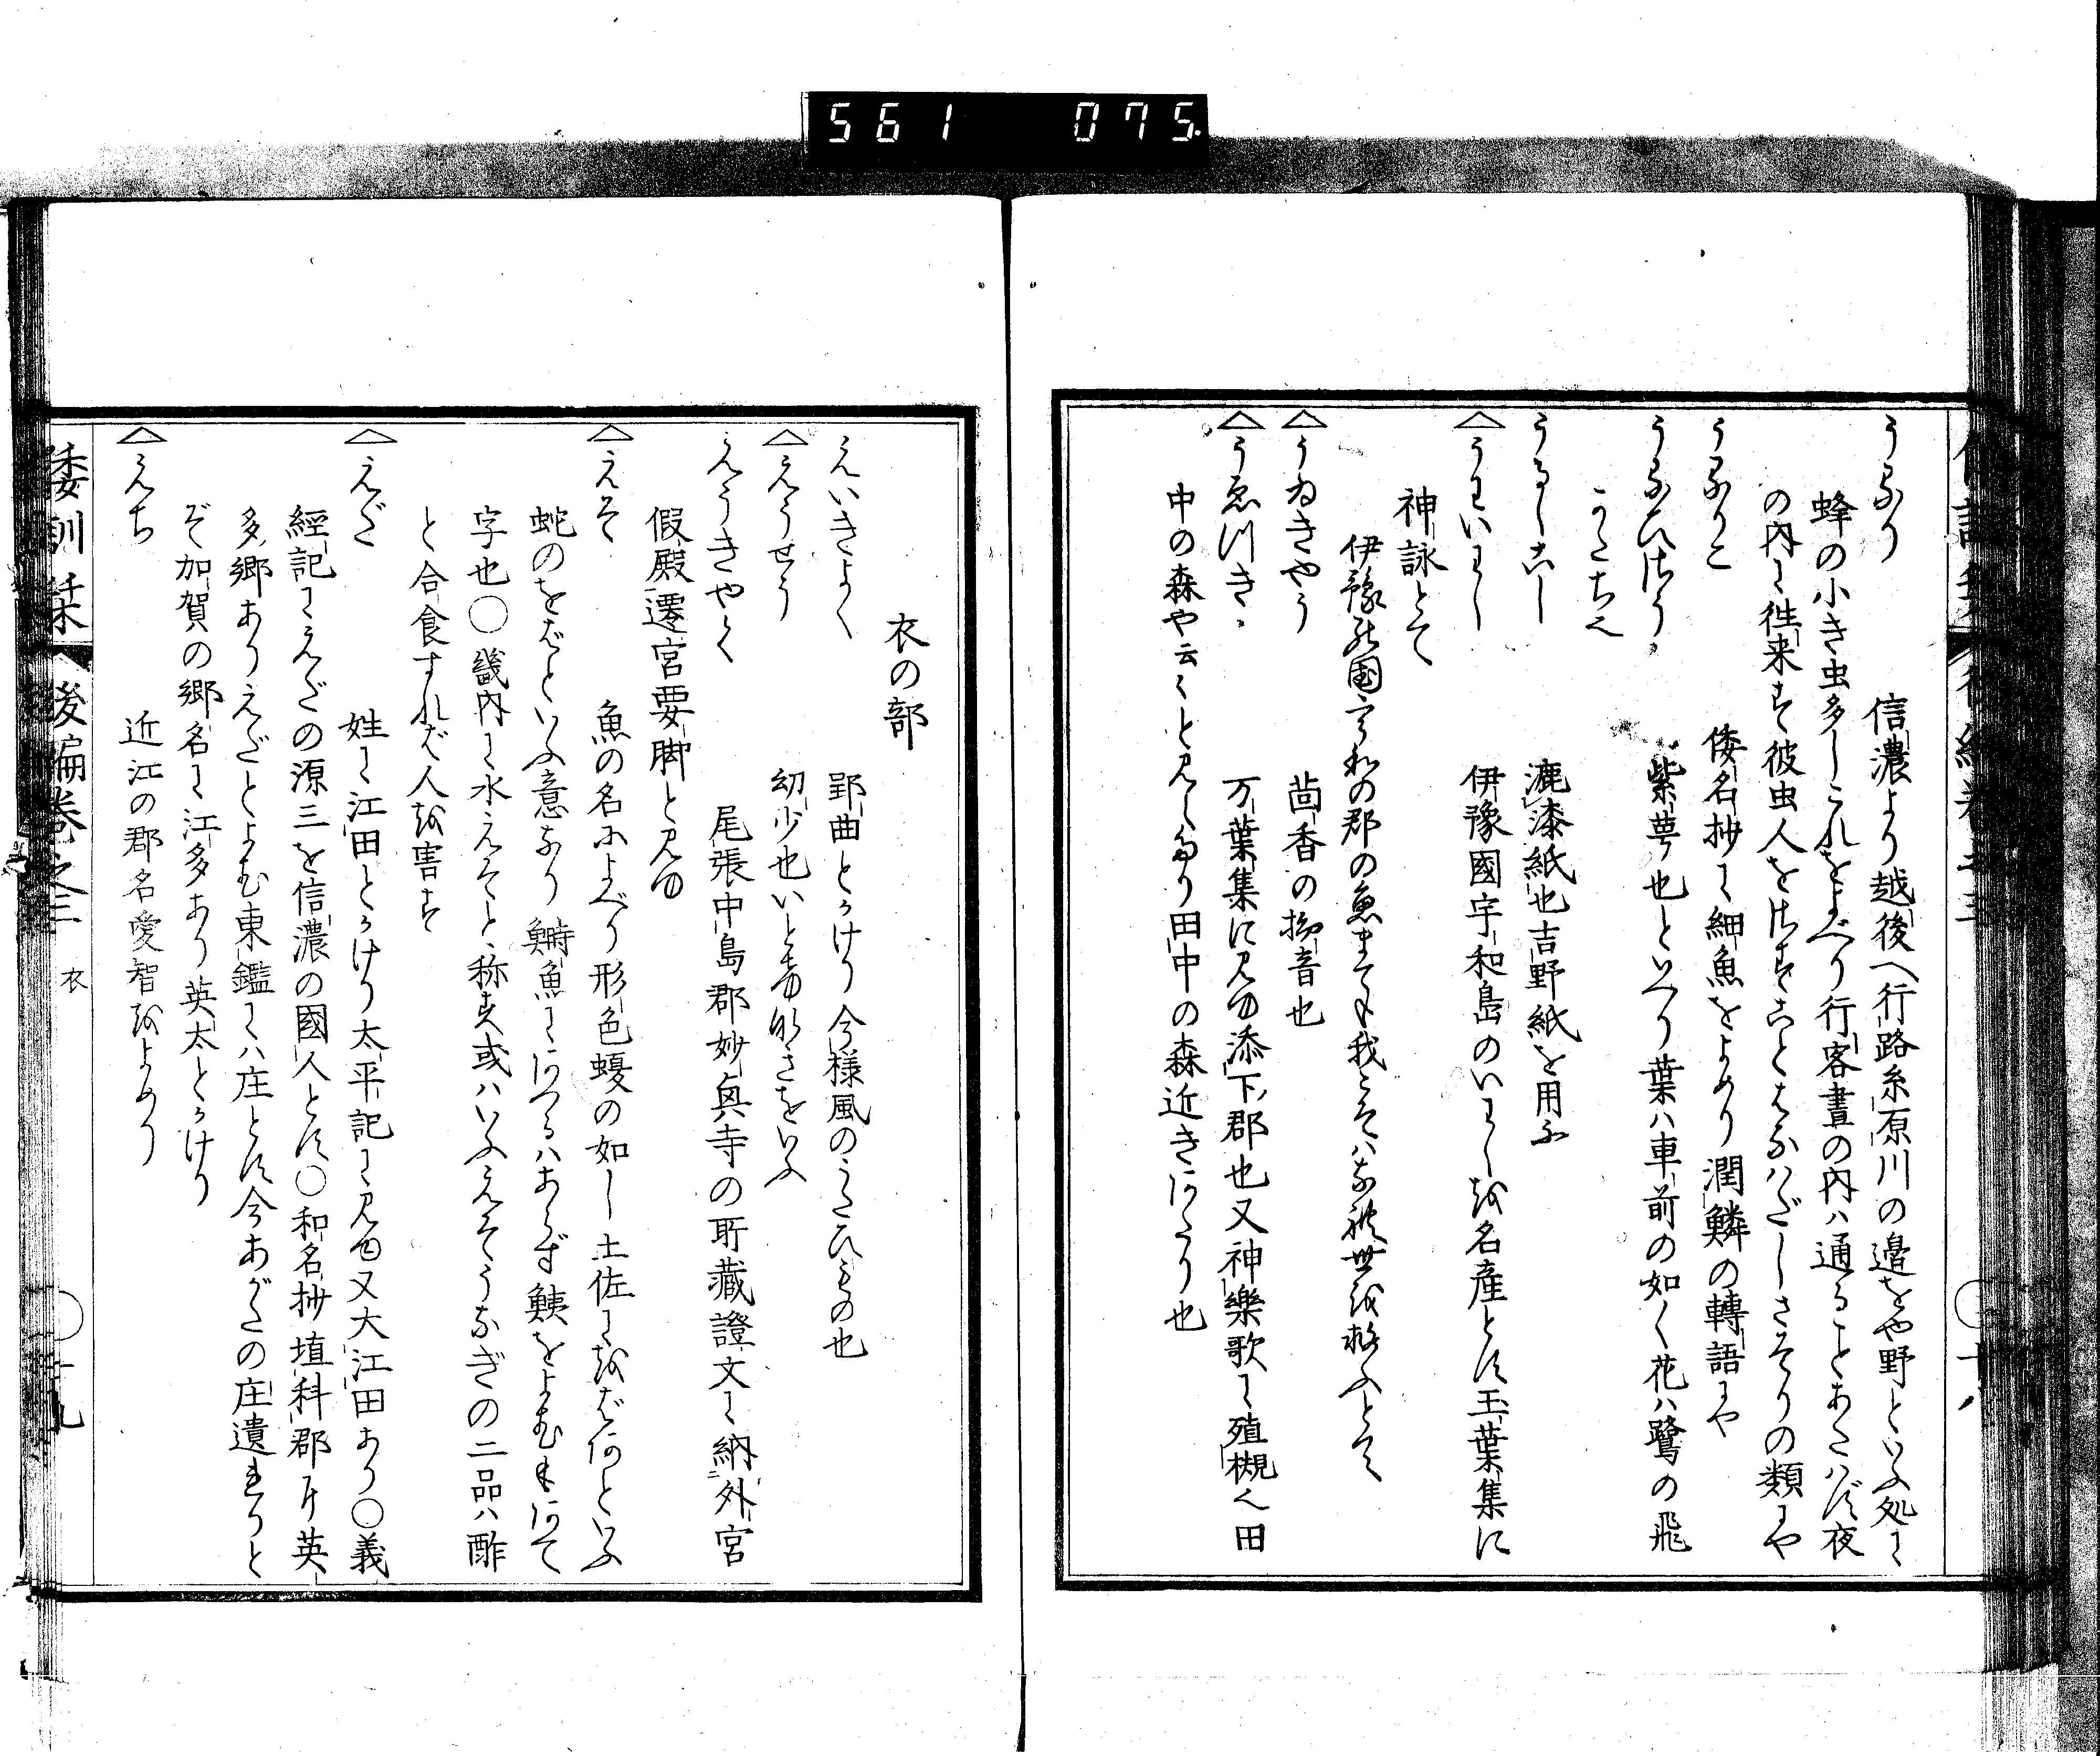 561 075
うるり 信濃より越後へ行路糸原川の邊をや野といふ処に
蜂の小き虫多しこれをよべり行客晝の内ハ通ることあたハず夜
の内に徃来す彼虫人をさすことはなハだしさそりの類にや
うるりこ 倭名抄に細魚をよめり潤鱗の轉語にや
うるひさう 紫萼也といへり葉ハ車前の如く花ハ鷺の飛
かたち也
うるしこし 漉漆紙也吉野紙を用ふ
うわいわし 伊豫國宇和島のいわしを名産とす玉葉集に
神詠とて
伊豫の国うわの郡の魚まても我こそハなれ世を救ふとて
うゐきやう 茴香の拗音也
うゑつき 万葉集に見ゆ添下郡也又神樂歌に殖槻や田
中の森や云々と見へたり田中の森近きにあたり也
衣の部
えいきよく 郢曲とかけり今様風のうたひもの也
えうせう 幼少也いときなきをいふ
えうきやく 尾張中島郡妙興寺の所藏證文に納外宮
假殿遷宮要脚と見ゆ
えそ 魚の名によべり形色蝮の如し土佐にをばあといふ
蛇のをばといふ意なり鰣魚にあつるハあらず鮧をよむもあて
字也○畿内に水えそと称す或ハいふえそうなぎの二品ハ酢
と合食すれば人を害す
えだ 姓に江田とかけり太平記に見ゆ又大江田あり○義
經記にえだの源三を信濃の國人とす○和名抄埴科郡に英
多郷ありえだとよむ東鑑にハ庄とす今あがたの庄遺れりと
ぞ加賀の郷名に江多あり英太とかけり
えち 近江の郡名愛智をよめり
倭訓栞 後編巻之三 衣 ○十九